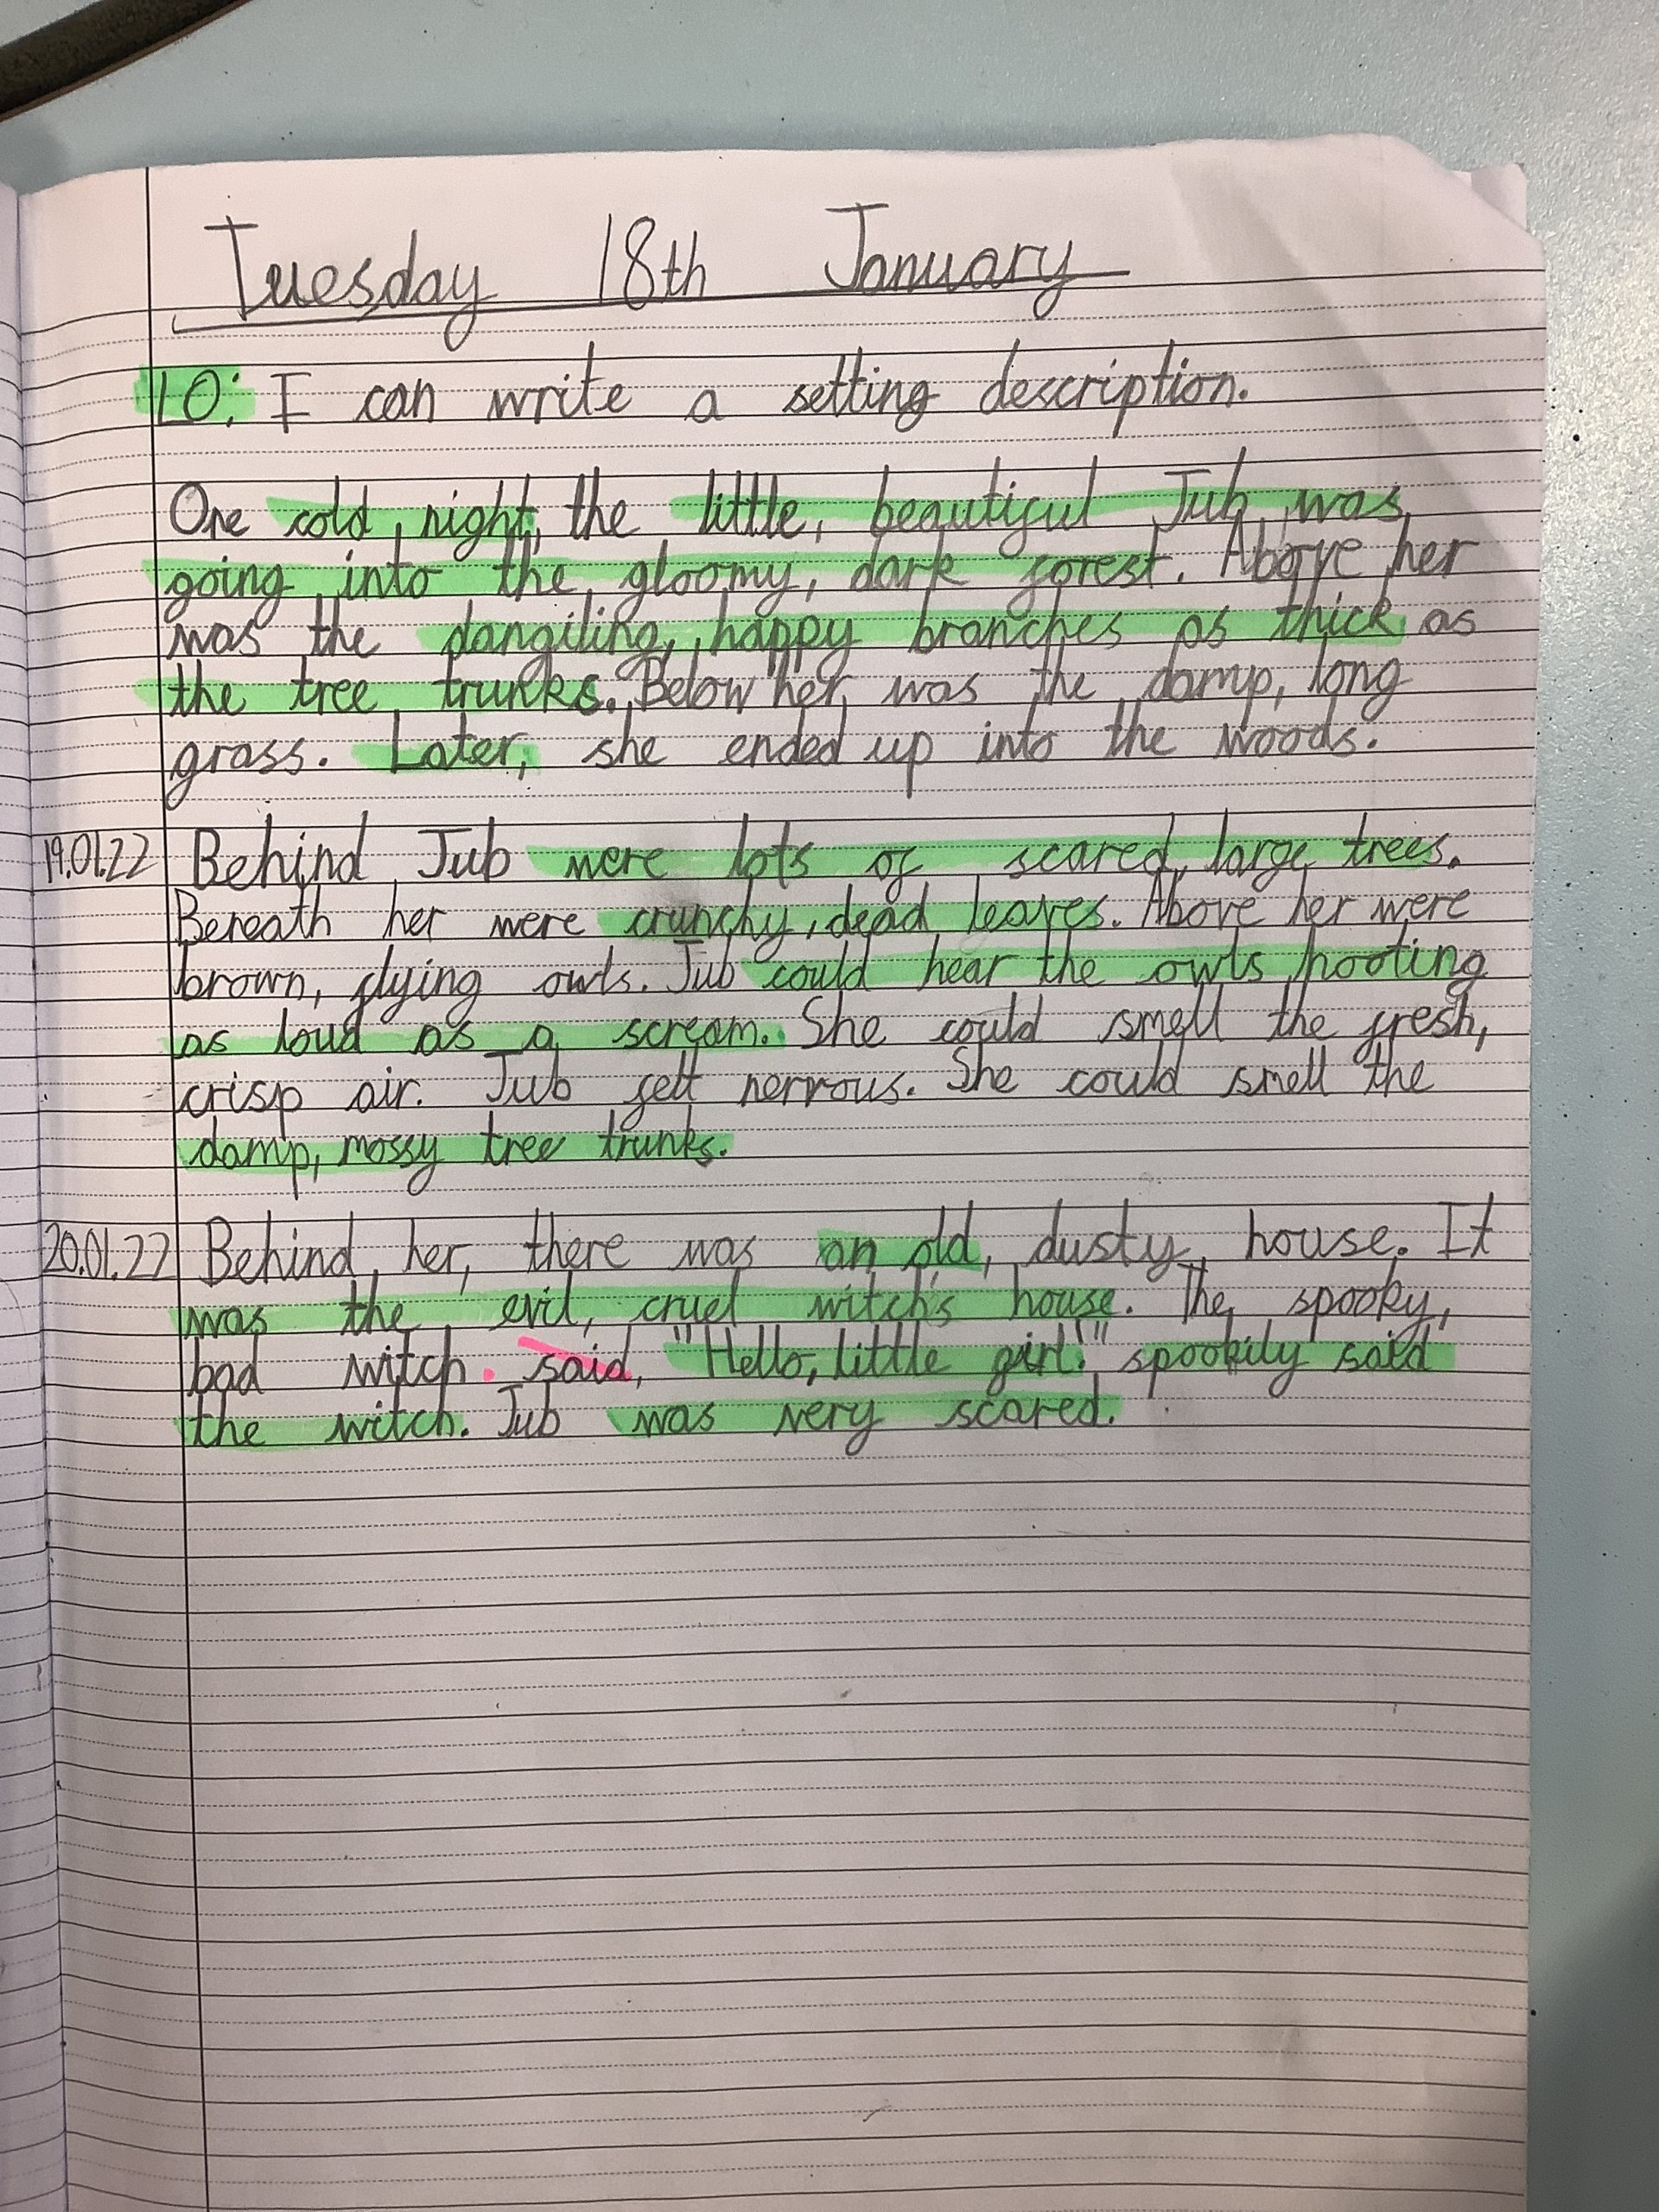 Tuesday 18th January
LO: I can write a setting description.
One cold night, the little, beautiful Jub was
going into the gloomy, dark forest. Above her
was the dangiling, happy branches as thick as
the tree trunks. Below her was the damp, long
grass. Later, she ended up into the woods.
19.01.22 Behind Jub were lots of scared, large trees.
Beneath her were crunchy, dead leaves. Above her were
brown, flying owls. Jub could hear the owls hooting
as loud as a scream. She could smell the fresh,
crisp air. Jub felt nervous. She could smell the
damp, mossy tree trunks.
20.01.22 Behind her, there was an old, dusty, house. It
was the evil, cruel witch's house. The spooky,
bad witch. said, "Hello, little girl!" spookily said
the witch. Jub was very scared.